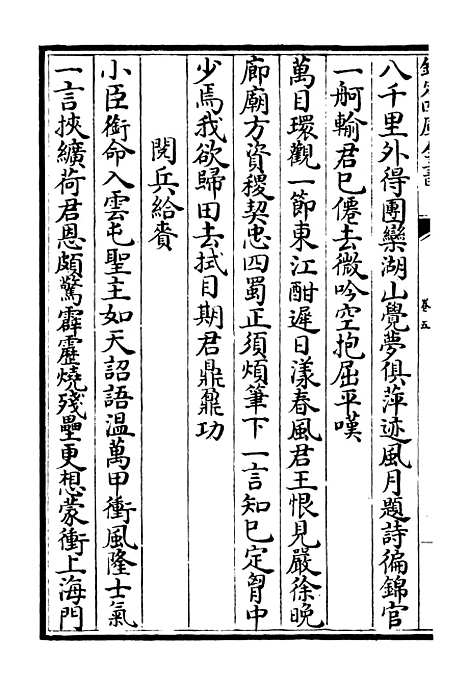 八千里外得團欒湖山覺夢俱萍迹風月題詩徧錦官
一舸輸君已僊去微吟空抱屈平嘆
萬目環觀一節東江酣遲日漾春風君王恨見嚴徐晚
廊廟方資稷契忠四蜀正須煩筆下一言知已定胷中
少焉我欲歸田去拭目期君鼎鼐功
閱兵給賚
小臣銜命入雲屯聖主如天詔語温萬甲衝風隆士氣
一言挾纊荷君恩頗驚霹靂燒殘壘更想蒙衝上海門